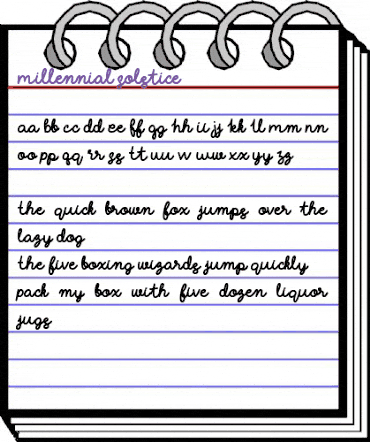 millennial solstice
aa bb cc dd ee ff gg hh ii jj kk ll mm nn
oo pp qq rr ss tt uu vv ww xx yy zz
the quick brown fox jumps over the
lazy dog
the five boxing wizards jump quickly
pack my box with five dozen liquor
jugs